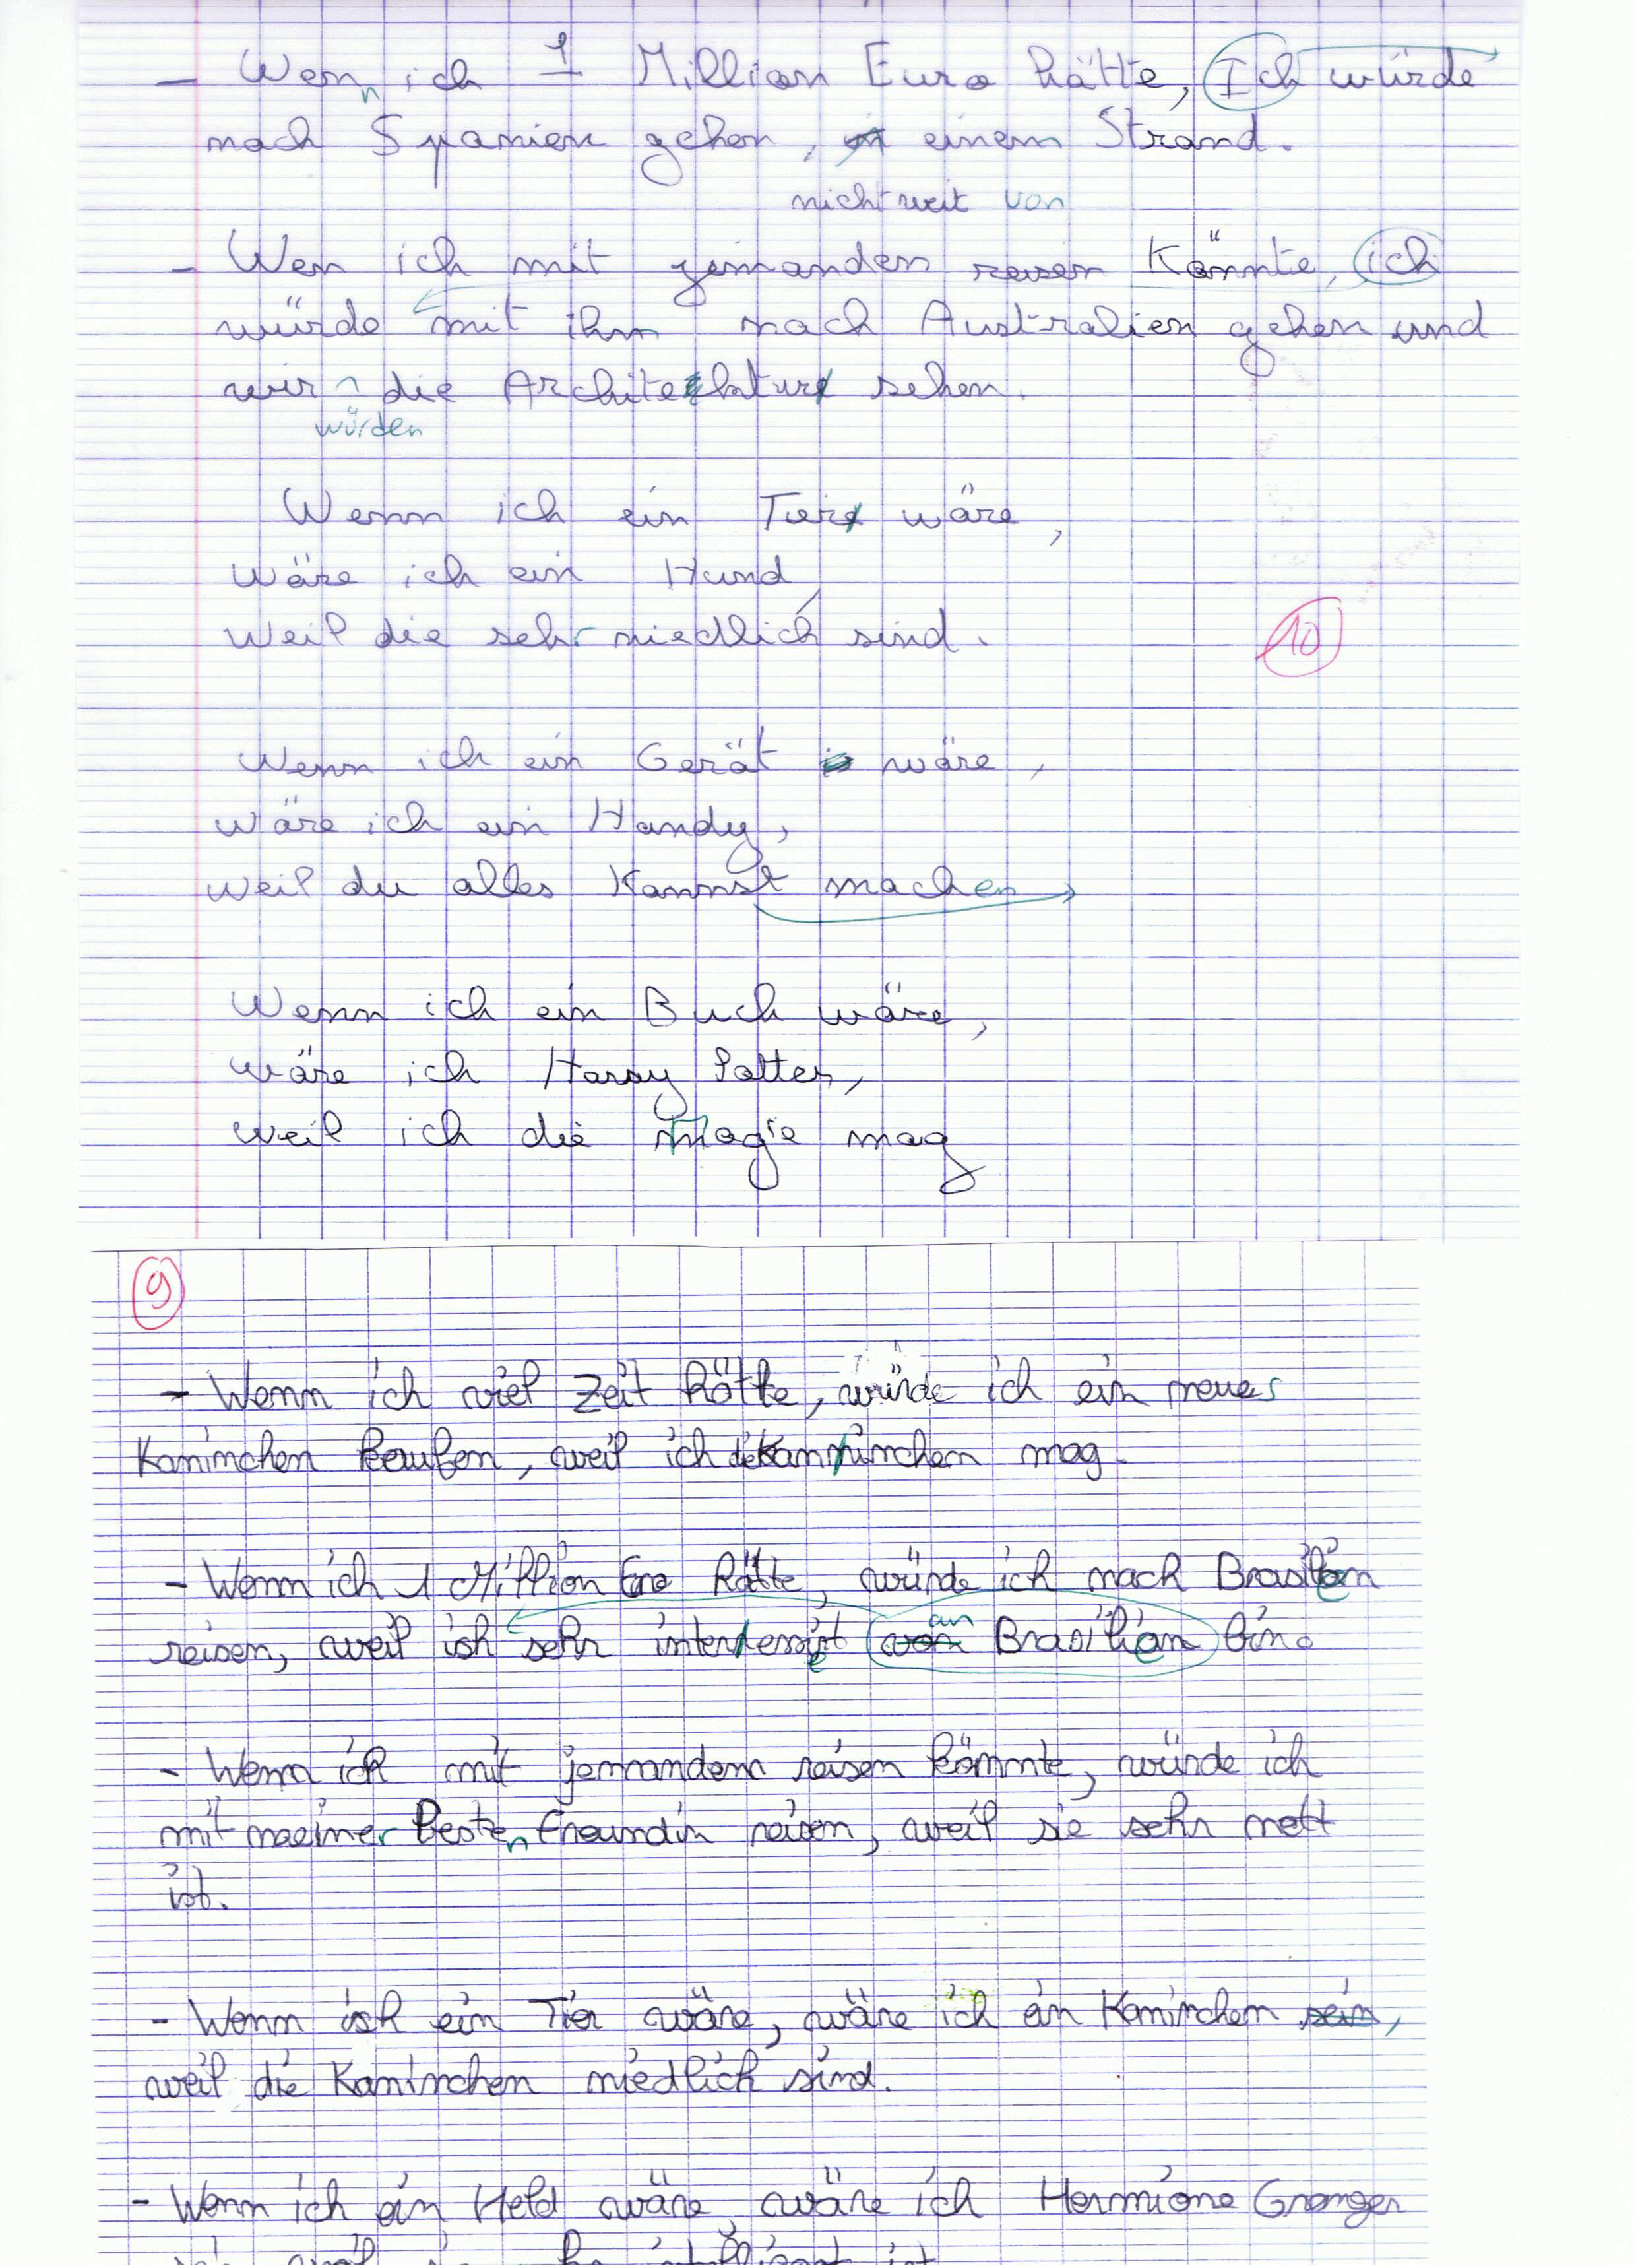 - Wenn ich 1 Million Euro hätte, Ich würde
nach Spanien gehen, einem Strand.
nicht weit von
- Wen ich mit jemanden reisen könnte, ich
würde mit ihm nach Australien gehen und
wir die Architektur sehen.
würden
Wenn ich ein Tier wäre,
wäre ich ein Hund,
weil die sehr niedlich sind.
10
Wenn ich ein Gerät wäre,
wäre ich ein Handy,
weil du alles kannst machen
Wenn ich ein Buch wäre,
wäre ich Harry Potter,
weil ich die Magie mag
9
- Wenn ich viel Zeit hätte, würde ich ein neues
Kaninchen kaufen, weil ich die Kaninchen mag.
- Wenn ich 1 Million Euro hätte, würde ich nach Brasilien
an
reisen, weil ich sehr interessiert von Brasilien bin.
- Wenn ich mit jemandem reisen könnte, würde ich
mit meiner besten Freundin reisen, weil sie sehr nett
ist.
- Wenn ich ein Tier wäre, wäre ich ein Kaninchen sein,
weil die Kaninchen niedlich sind.
- Wenn ich ein Held wäre, wäre ich Hermione Granger